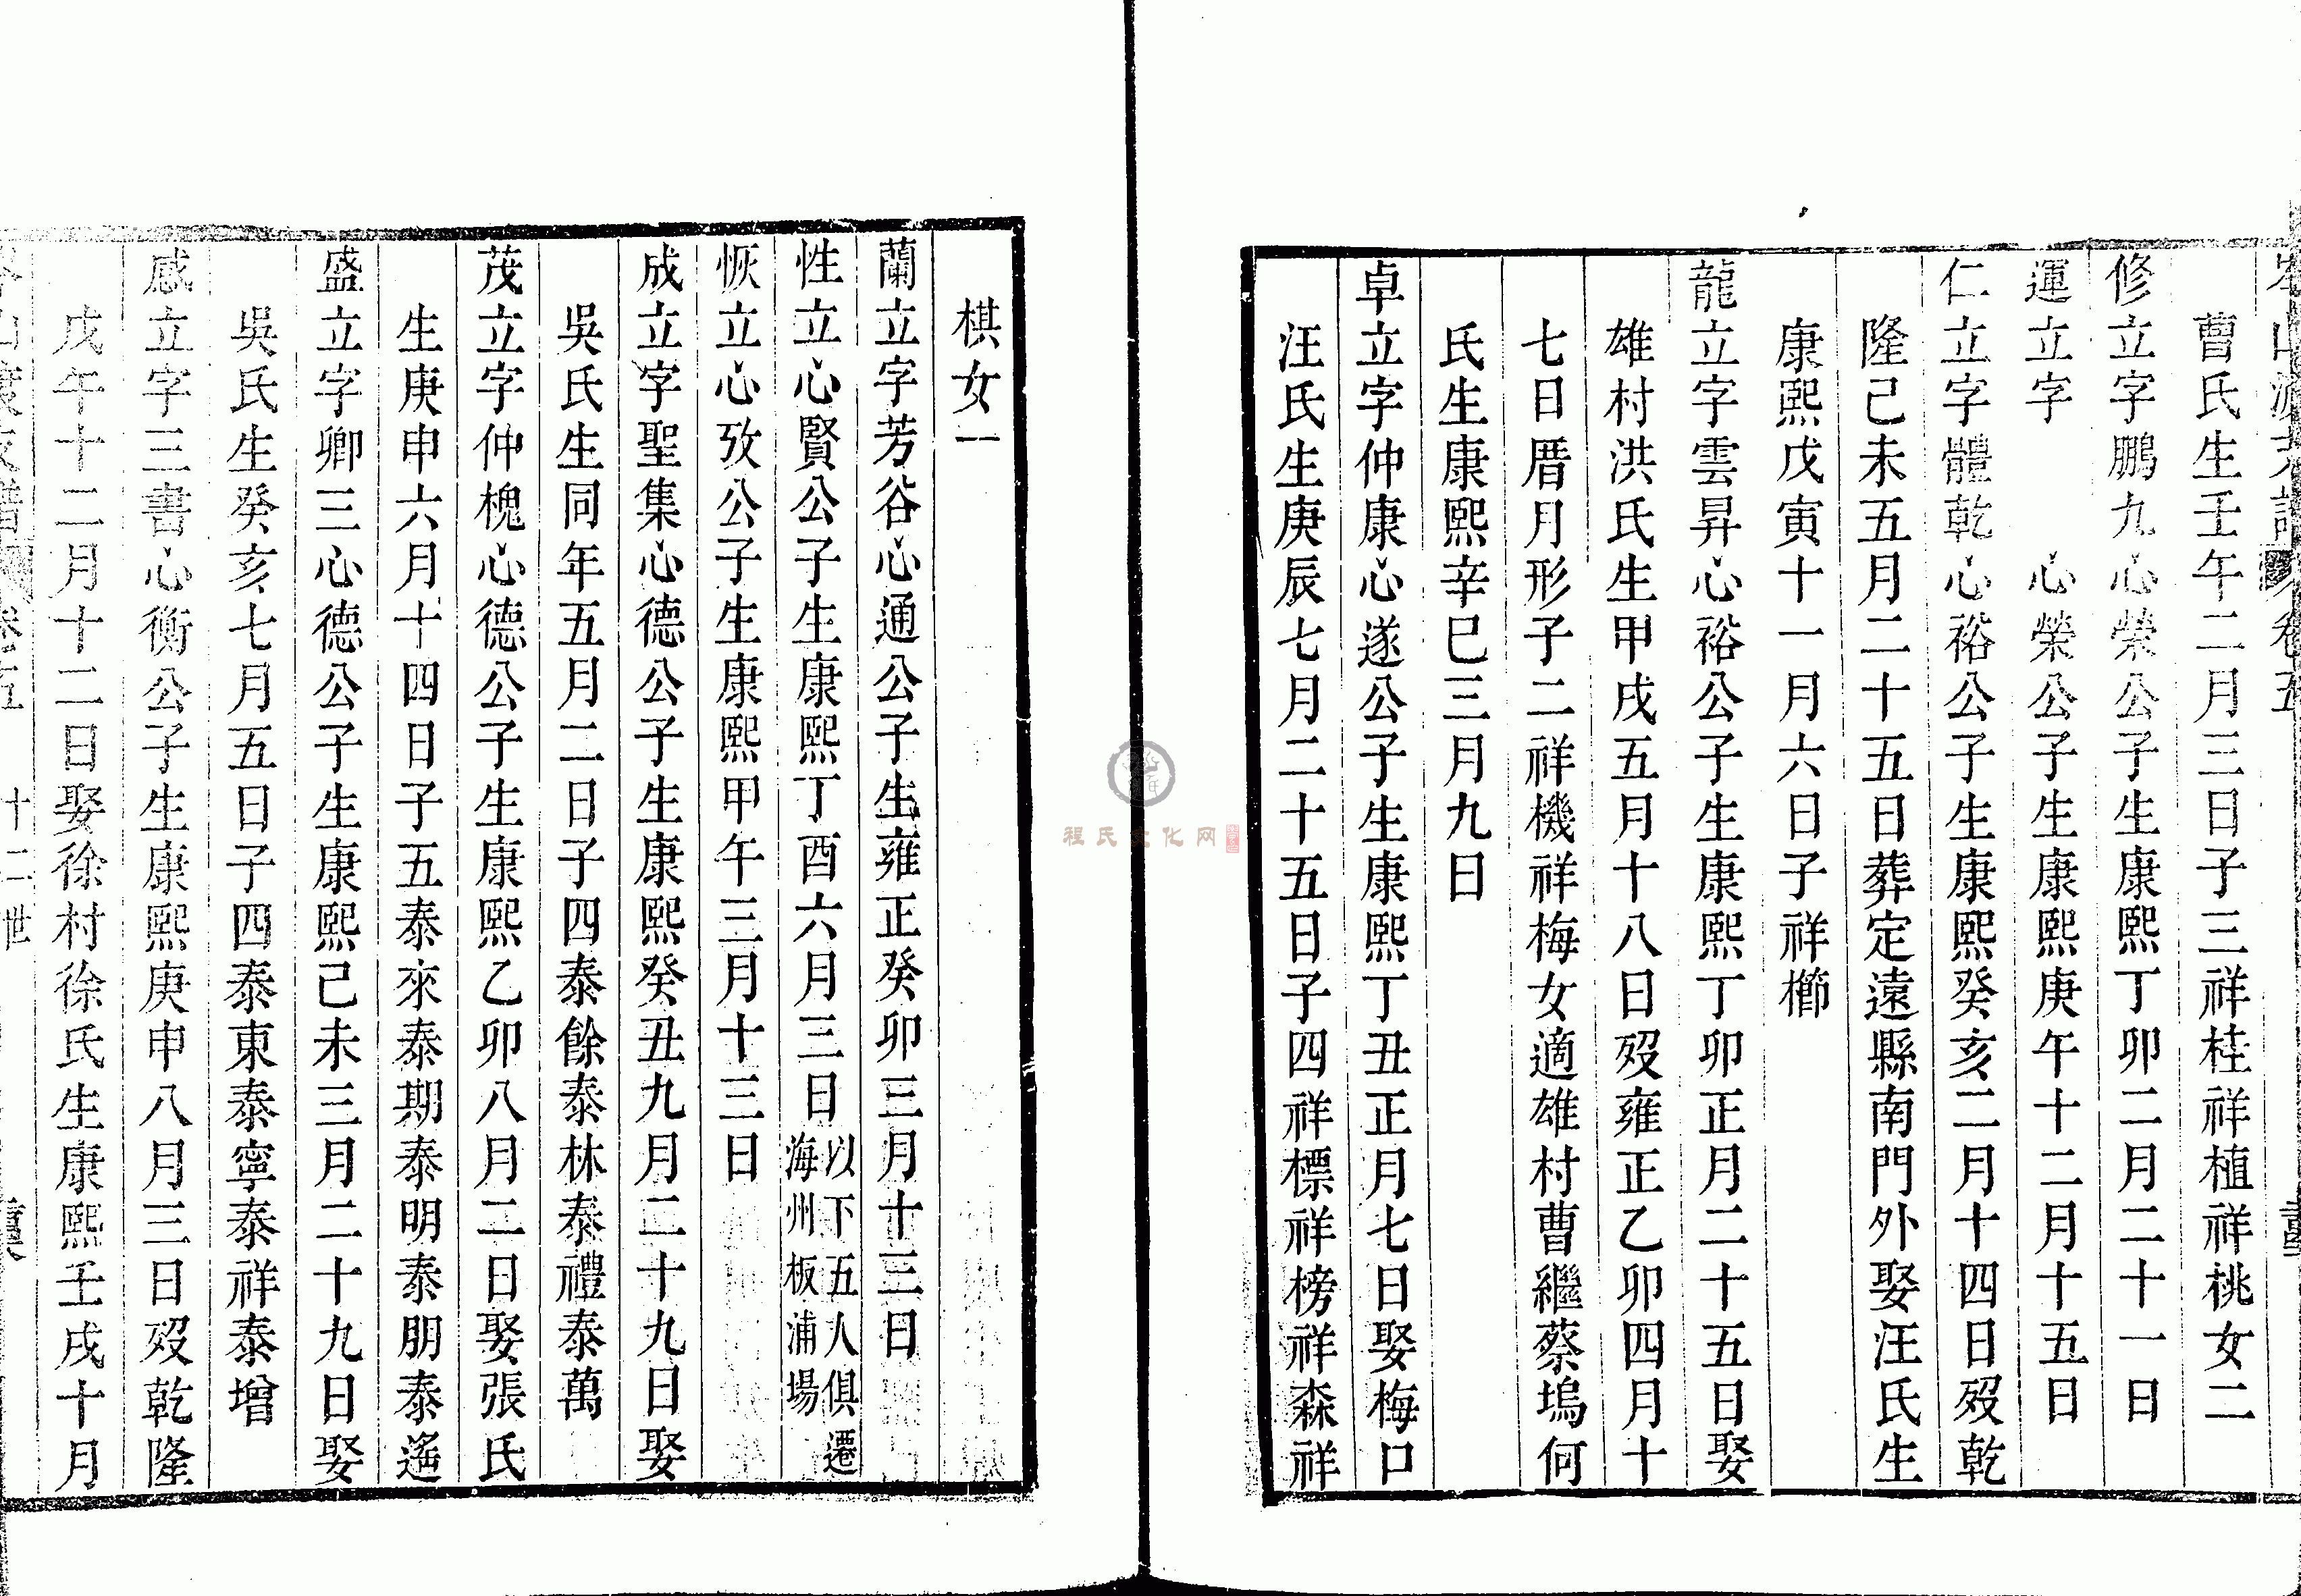 岑山渡支譜 卷五
曹氏生壬午二月三日子三祥桂祥植祥桃女二
修立字鵬九心榮公子生康熙丁卯二月二十一日
運立字 心榮公子生康熙庚午十二月十五日
仁立字體乾心裕公子生康熙癸亥二月十四日歿乾
隆己未五月二十五日葬定遠縣南門外娶汪氏生
康熙戊寅十一月六日子祥櫛
龍立字雲昇心裕公子生康熙丁卯正月二十五日娶
雄村洪氏生甲戌五月十八日歿雍正乙卯四月十
七日厝月形子二祥機祥梅女適雄村曹繼蔡塢何
氏生康熙辛巳三月九日
卓立字仲康心遂公子生康熙丁丑正月七日娶梅口
汪氏生庚辰七月二十五日子四祥標祥榜祥森祥
棋女一
蘭立字芳谷心通公子生雍正癸卯三月十三日
性立心賢公子生康熙丁酉六月三日以下五人俱遷海州板浦場
恢立心攷公子生康熙甲午三月十三日
成立字聖集心德公子生康熙癸丑九月二十九日娶
吳氏生同年五月二日子四泰餘泰林泰禮泰萬
茂立字仲槐心德公子生康熙乙卯八月二日娶張氏
生庚申六月十四日子五泰來泰期泰明泰朋泰遙
盛立字卿三心德公子生康熙己未三月二十九日娶
吳氏生癸亥七月五日子四泰東泰寧泰祥泰增
感立字三書心衡公子生康熙庚申八月三日歿乾隆
戊午十二月十二日娶徐村徐氏生康熙壬戌十月
卷五 十二世
程氏文化网